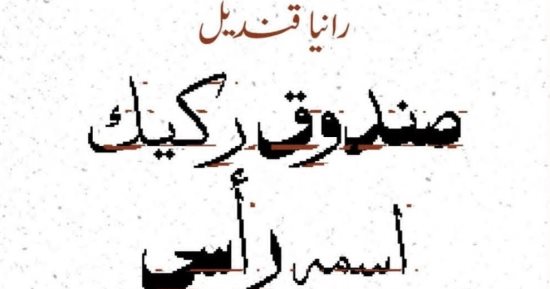 رانيا قنديل
صندوق ركيك
اسمه رأسي